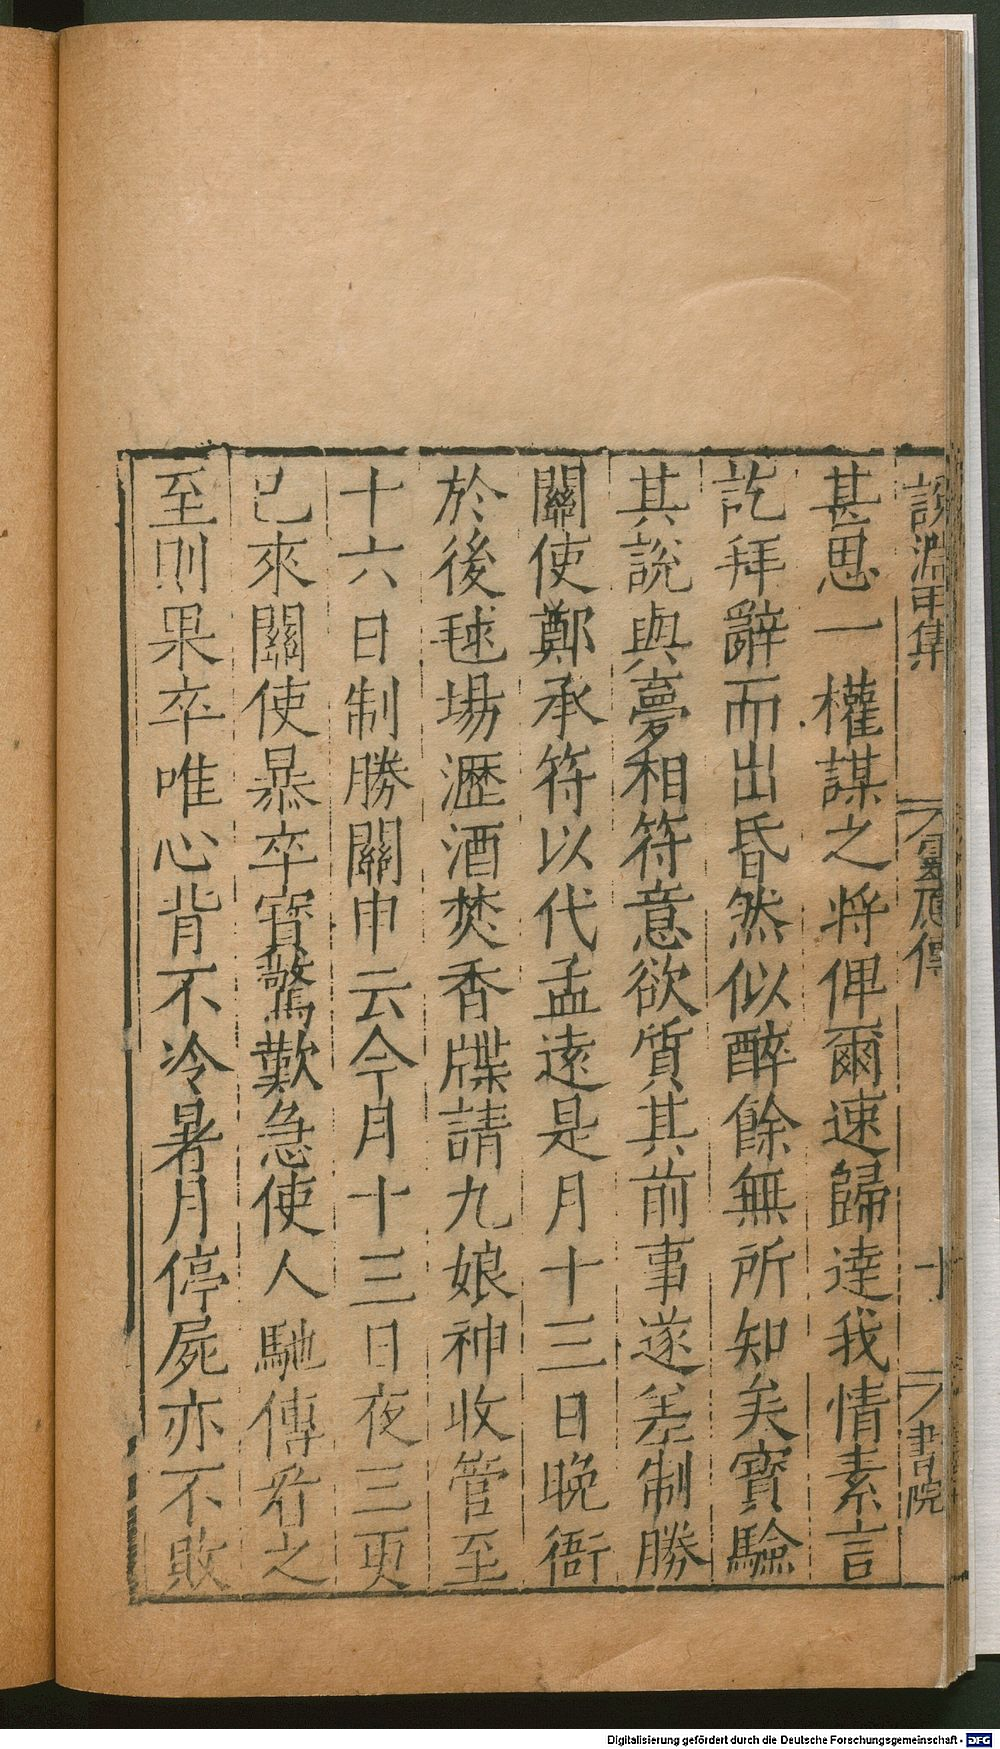 說淵甲集 靈應傳 十 書院
甚思一權謀之將俾爾速歸達我情素言
訖拜辭而出昏然似醉餘無所知矣寶驗
其說與夢相符意欲質其前事遂差制勝
關使鄭承符以代孟遠是月十三日晚衙
於後毬場瀝酒焚香牒請九娘神收管至
十六日制勝關申云今月十三日夜三更
已來關使暴卒寶驚歎急使人馳傳看之
至則果卒唯心背不冷暑月停屍亦不敗
Digitalisierung gefördert durch die Deutsche Forschungsgemeinschaft - DFG